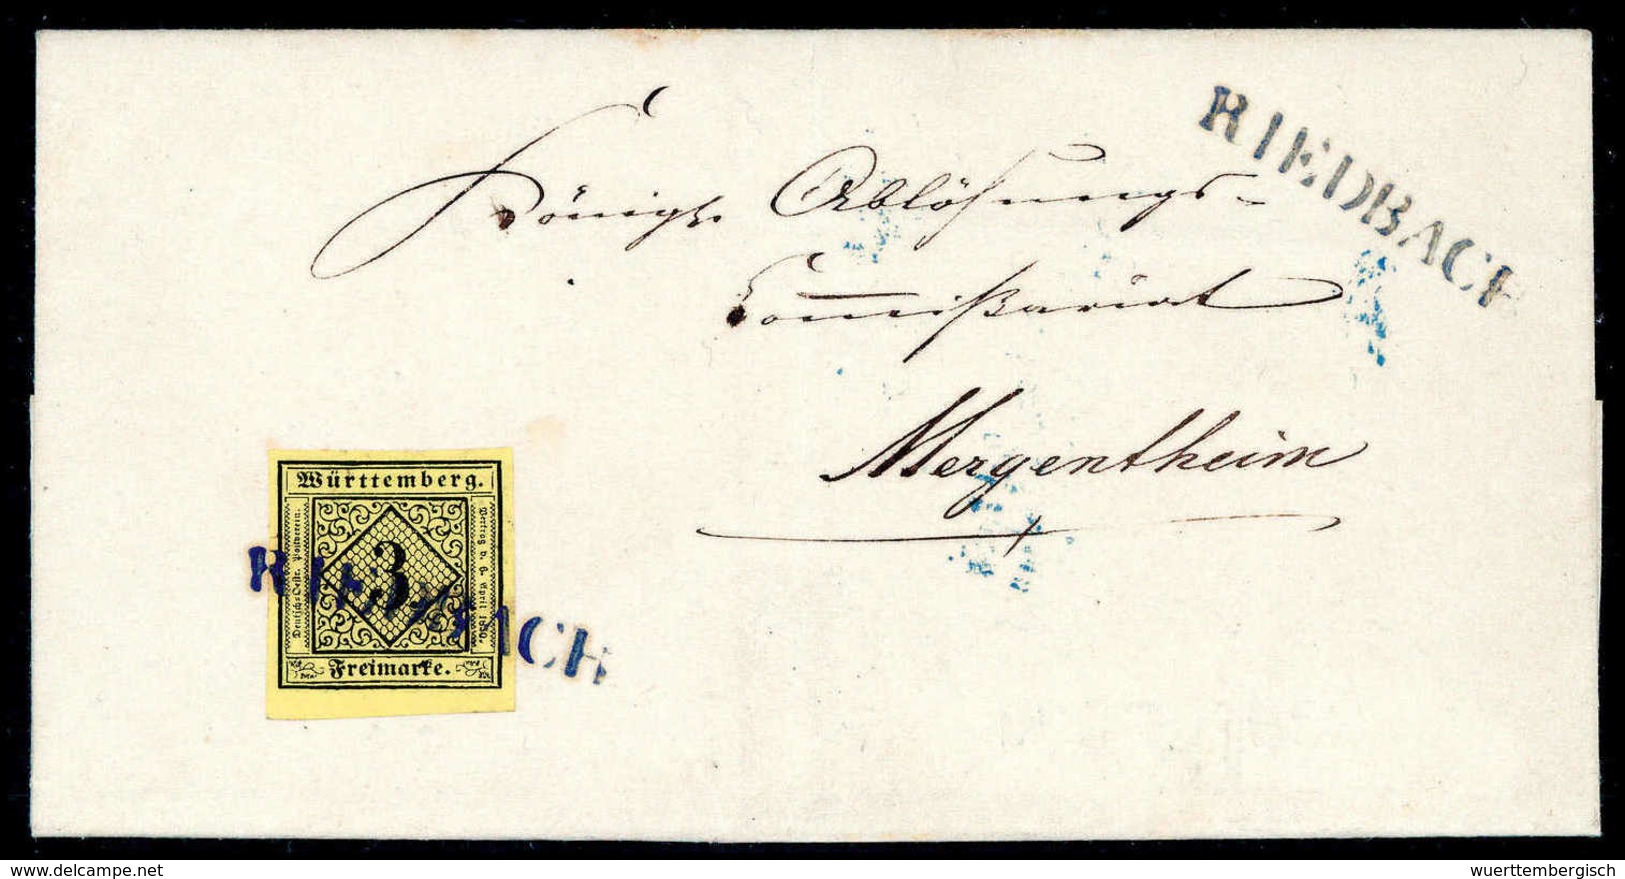 RIEDBACH
Königl. Ablösungs-
Commißariat
Mergentheim
Württemberg.
Deutsch-Oestr. Postverein.
3
Vertrag v. 6. April 1850.
Freimarke.
RIEDBACH
delcampe.net
wuerttembergisch